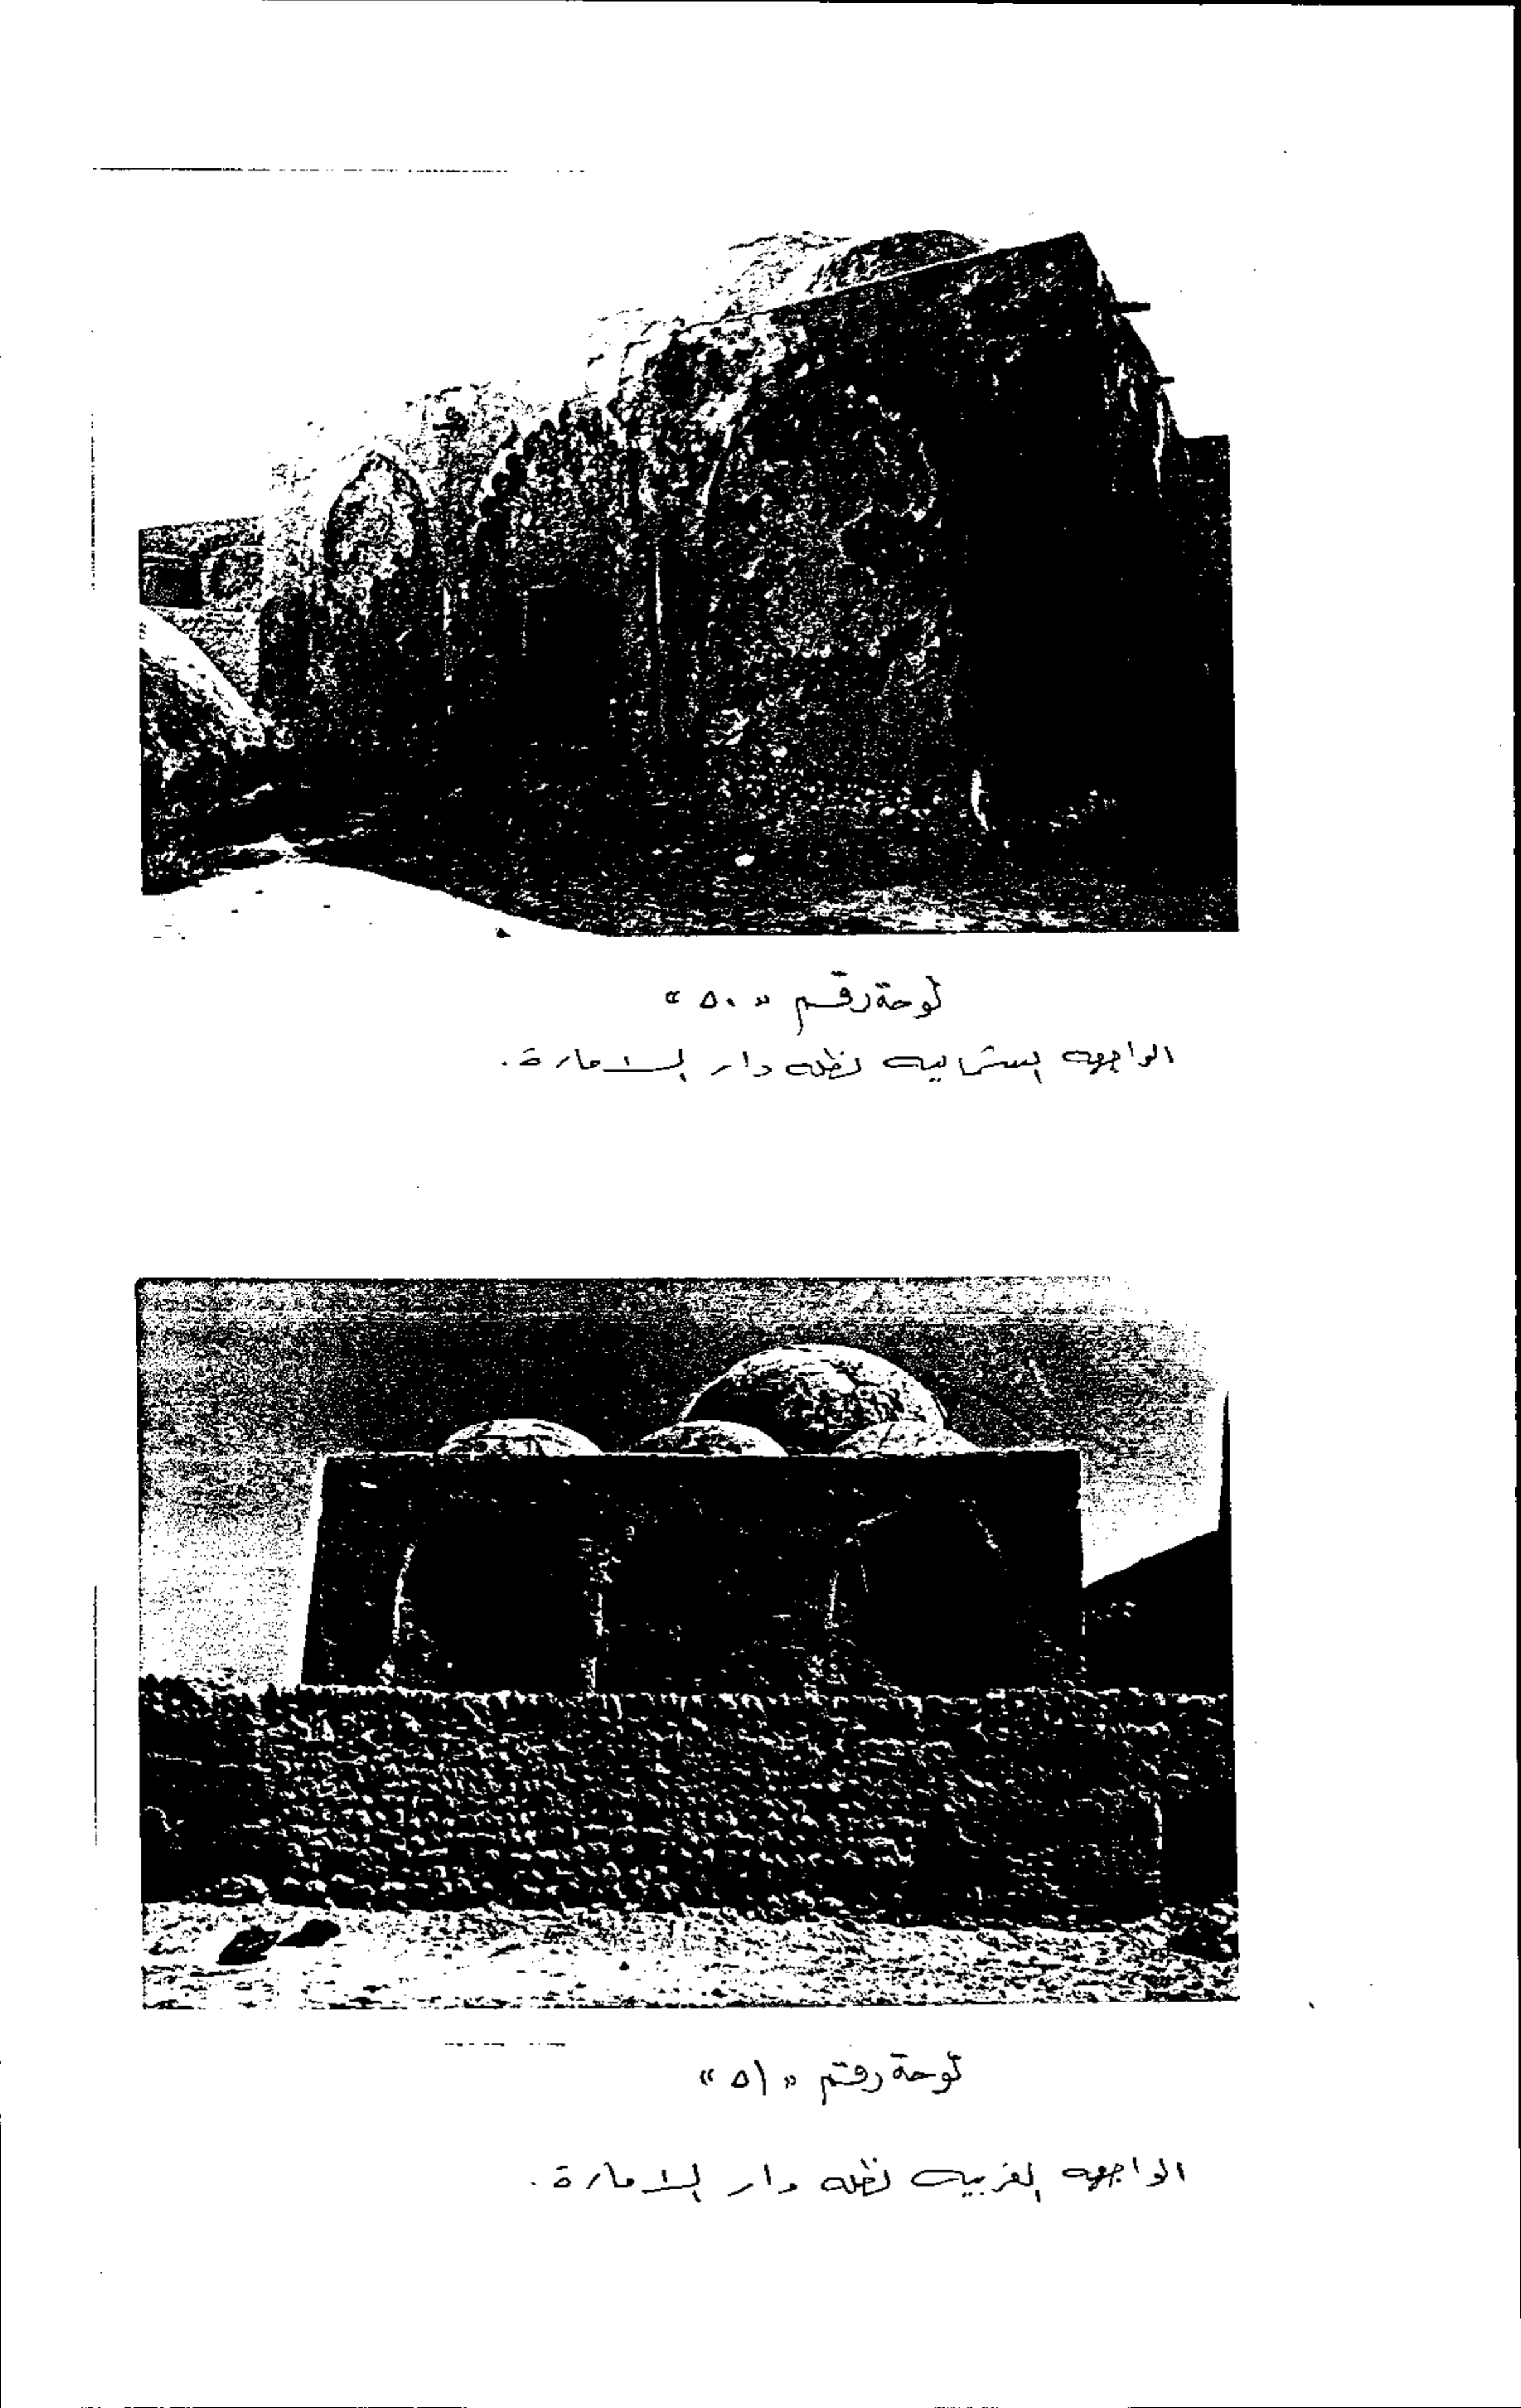 لوحة رقم « ٥٠ »
الواجهه الشماليه لظله دار الامارة.
لوحة رقم « ٥١ »
الواجهه الغربيه لظله دار الامارة.